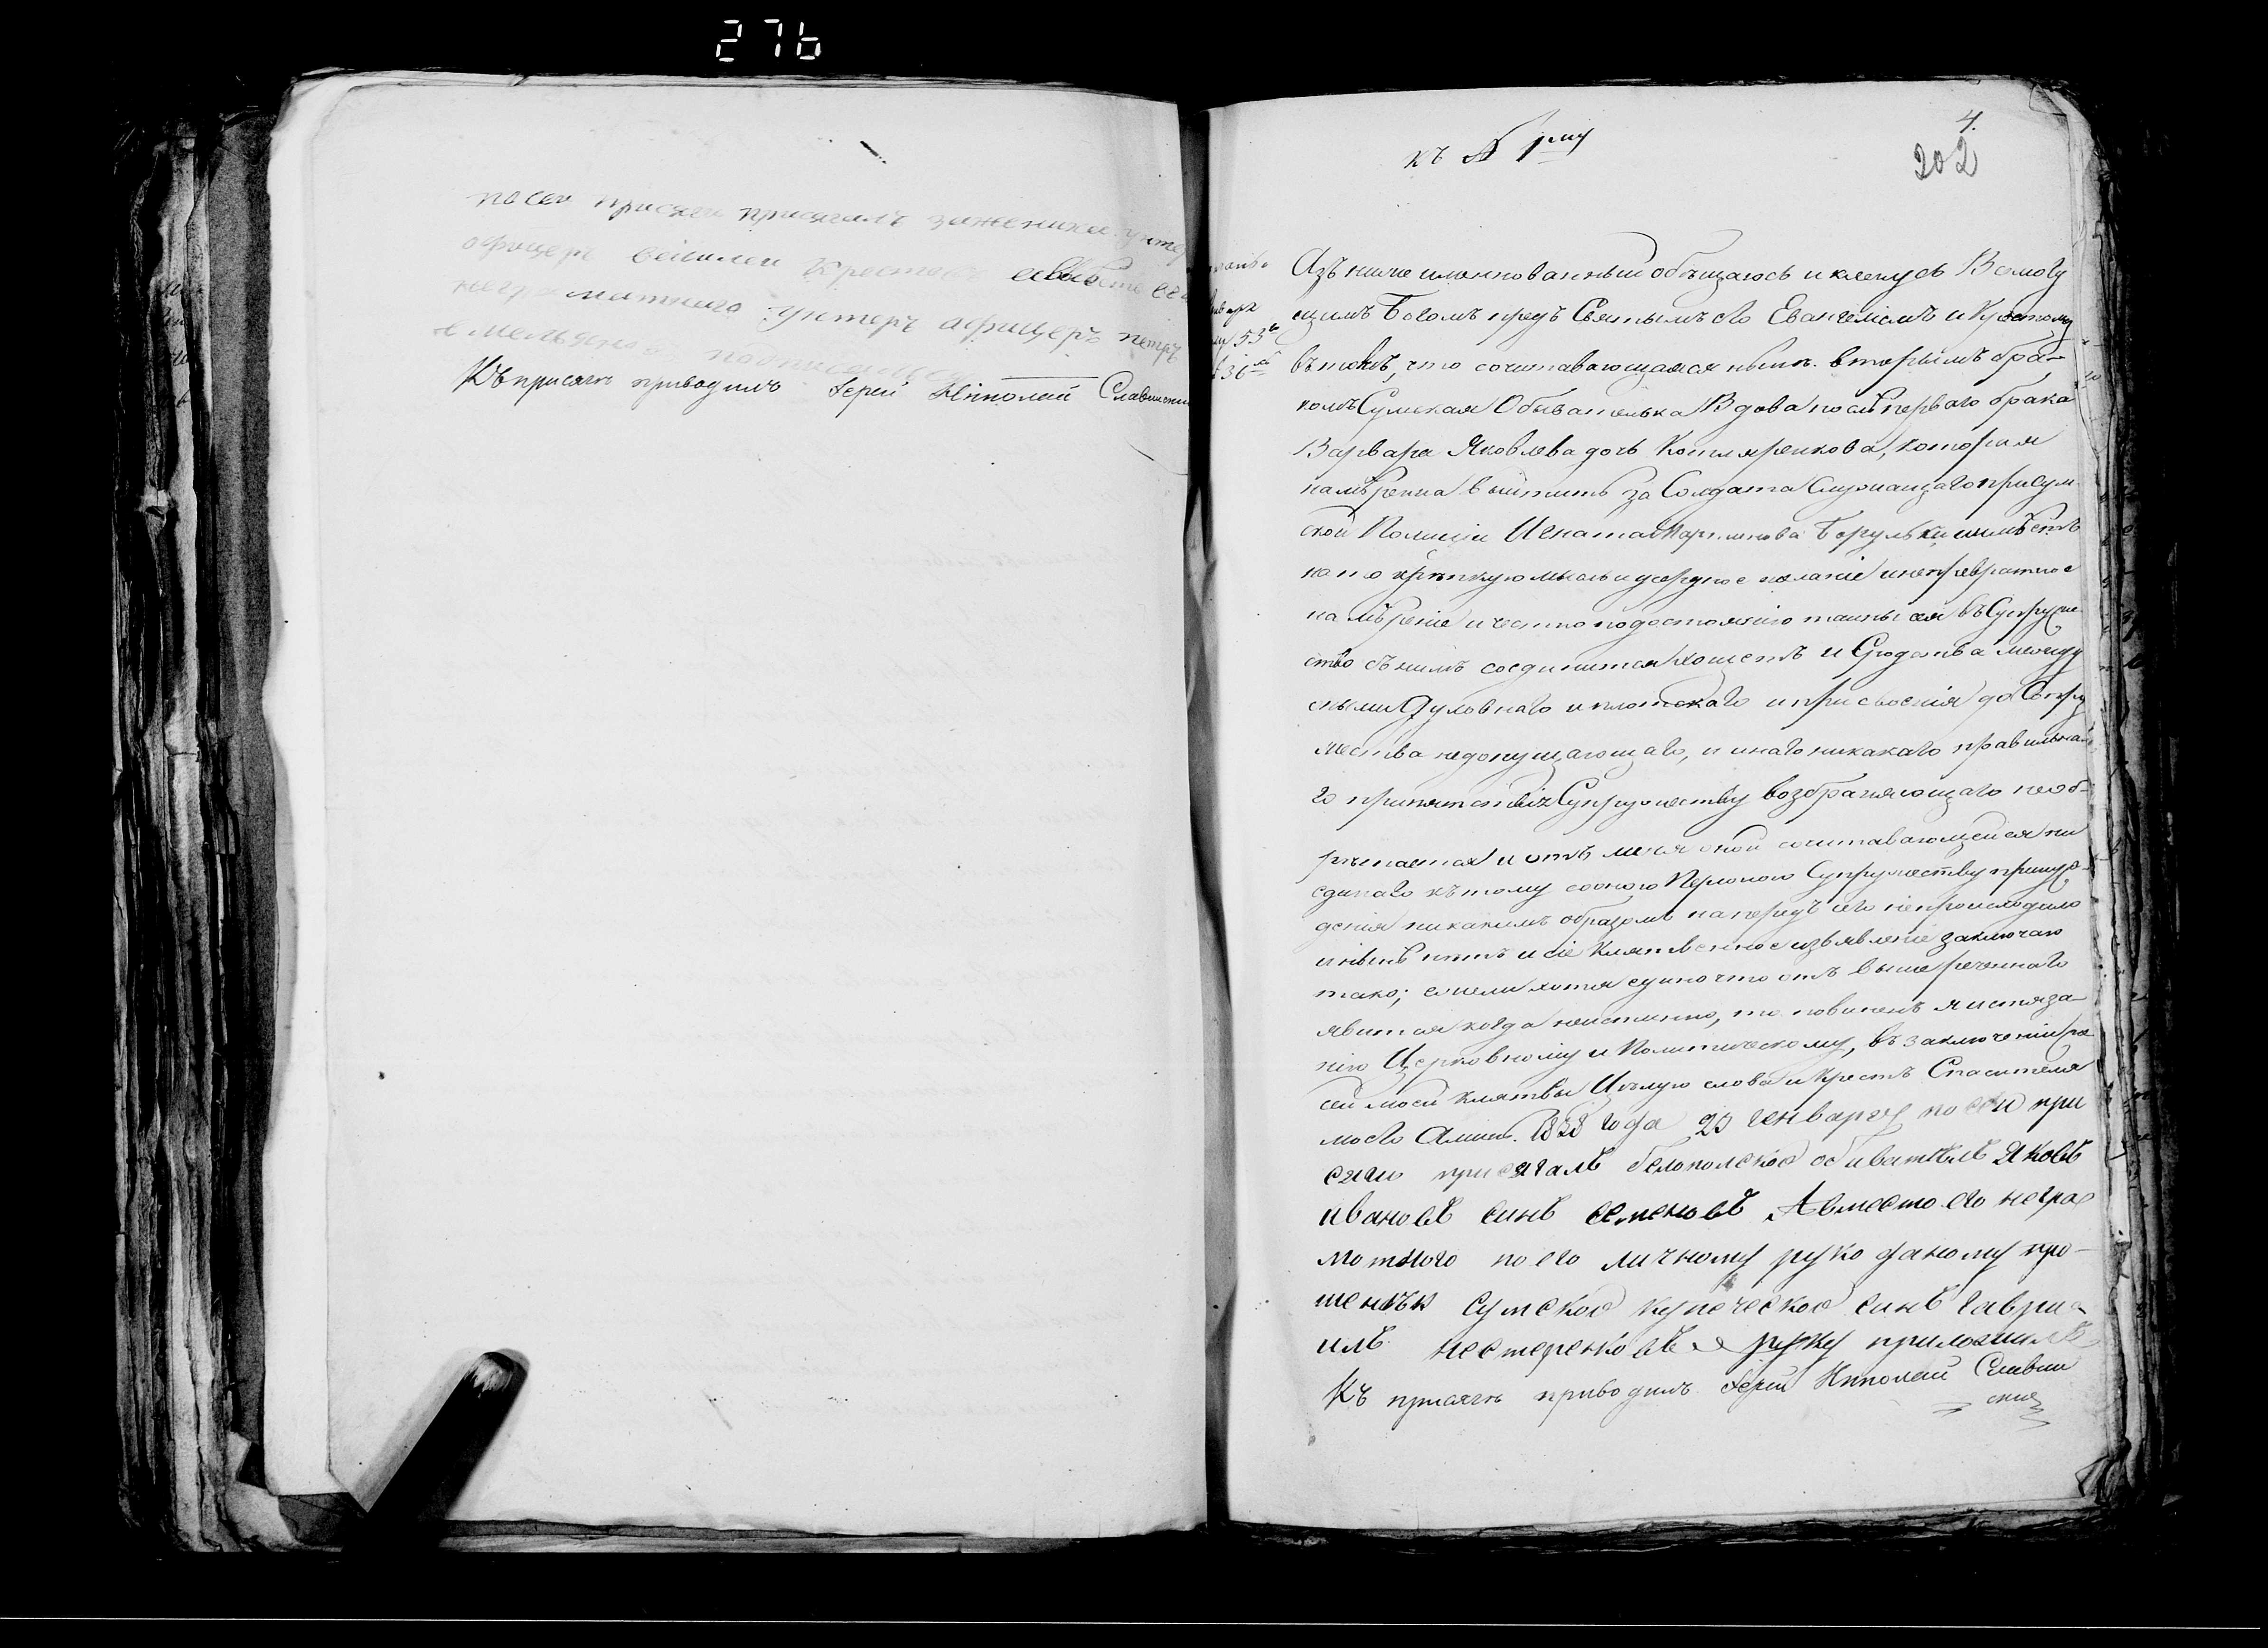 276
по сей присяги присягалъ зажениха унте
офицеръ василеи Крестов авместо его
неграматного унтеръ афицеръ петръ
подписался
Къ присягѣ приводилъ Іерей Николай Славинскі
къ № 1му
4.
202
Азъ ниже имяннованный обѣщаюсь и кленусь Всемогу
щимъ Богомъ предъ Святымъ его Евангеліемъ и Крестомъ
въ томъ, что сочитавающаяся нынѣ вторымъ бра-
комъ Сумская Обывателька Вдова послѣ перваго брака
Варвара Яковлева дочь Котляренкова, которая
намѣрена выйтить за Солдата Служащаго при Сум
ской Полиціи Игната Мартинова Берульки имѣетъ
на то крѣпкую мысль и усердное желаніе и непревратное
намѣреніе и честно по достоянію тайны сея въ Супруже
ство съ нимъ соединится хощетъ и Сродства между
ными Духовнаго и плотскаго и присвоенія до Супру
жества недопущающаго, и инаго никакаго правильна
го припятствія Супружеству возбраняющаго необ-
рѣтается и отъ меня оной сочитавающейся ни
единаго къ тому сооною Персоною Супружеству принуж-
денія никакимъ образомъ напередъ сего непроисходило
и нынѣ нѣтъ и сіе Клятвенное изъявленіе заключаю
тако; ежели хотя едино что отъ вышереченнаго
явится когда неистинно, то повиненъ я истяза-
нію Церковному и Политическому, въ заключеніи же
сей моей клятвы Цѣлую слова и крестъ Спасителя
моего Аминь. 1838 года 23 генваря по сеи при
сяги присягалъ белополской обиватель Яковъ
ивановъ синъ семеновъ Авместо его негра
мотного по его личному руко даному про-
шению сумской купеческой синъ гаври-
илъ нестеренковъ руку приложилъ
Къ присягѣ приводилъ Іерей Николай Славин
скій